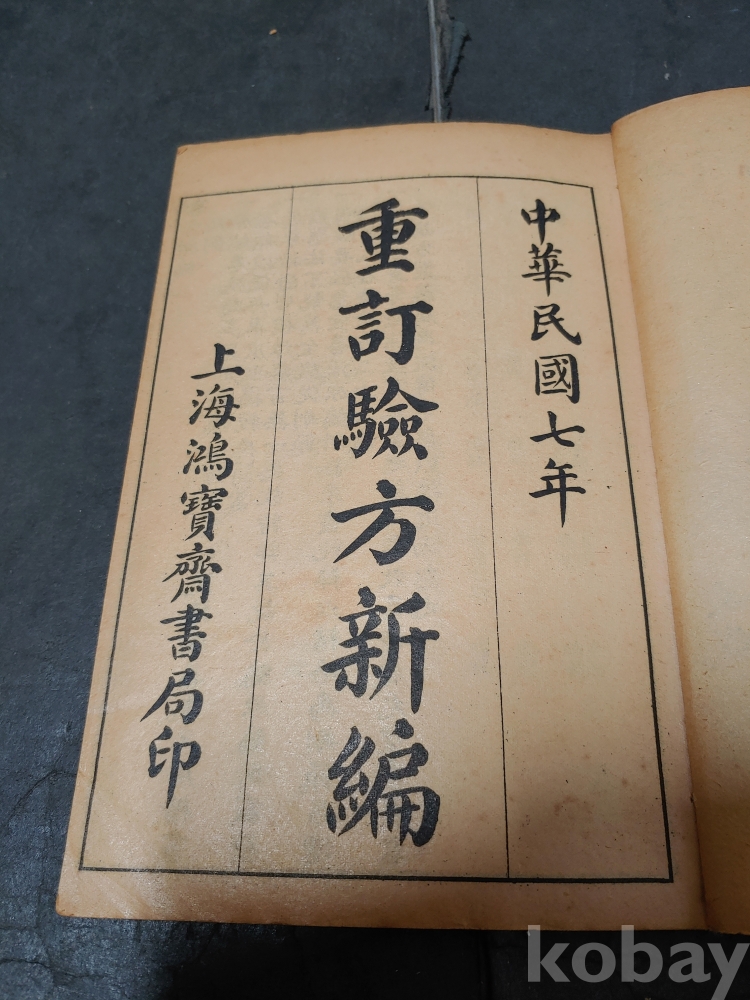 中華民國七年
重訂驗方新編
上海鴻寶齋書局印
kobay